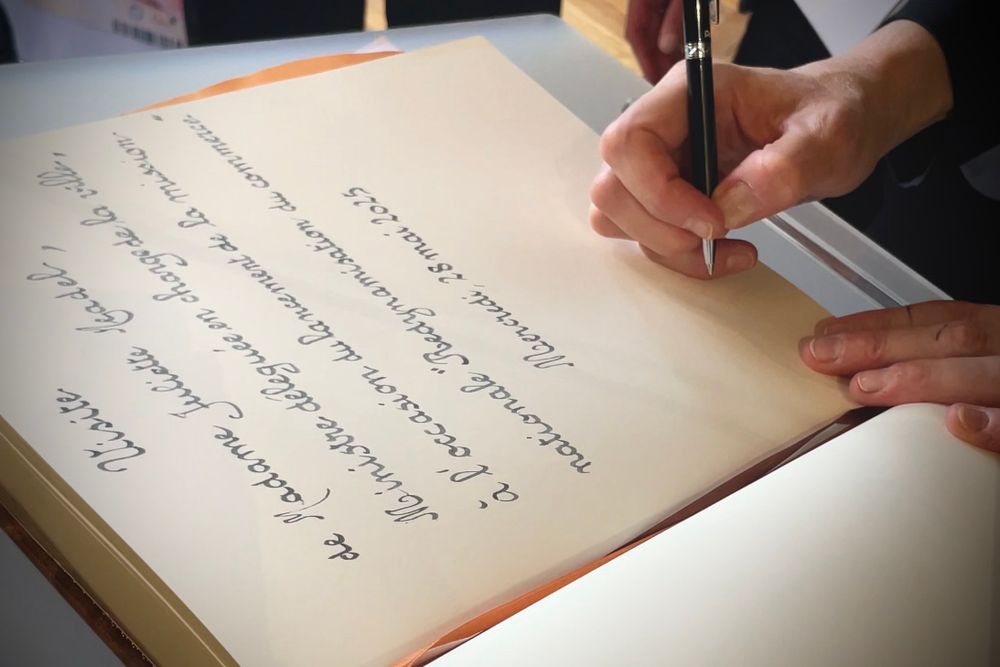 Visite
de Madame Juliette Méadel,
Ministre déléguée en charge de la ville,
à l'occasion du lancement de la mission
nationale "Redynamisation du commerce".
Mercredi, 28 mai 2025